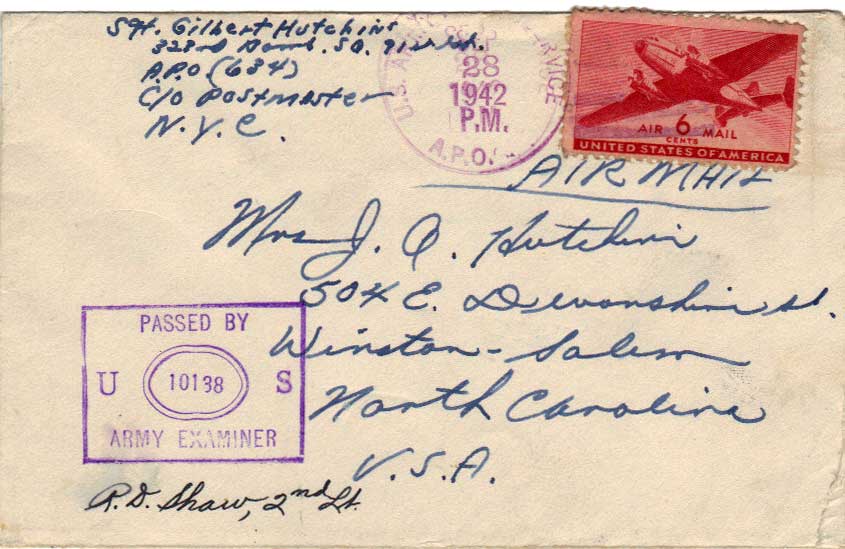 Sgt. Gilbert Hutchins
323rd Bomb. SQ. 91
A.P.O. (634)
C/O Postmaster
N.Y.C.
U.S. A SERVICE
28
1942
P.M.
A.P.O.
AIR 6 MAIL
CENTS
UNITED STATES OF AMERICA
AIR MAIL
Mrs J. Q. Hutchins
504 E. Devonshire St.
Winston-Salem
North Carolina
U.S.A.
PASSED BY
U 10138 S
ARMY EXAMINER
R.D. Shaw, 2nd Lt.